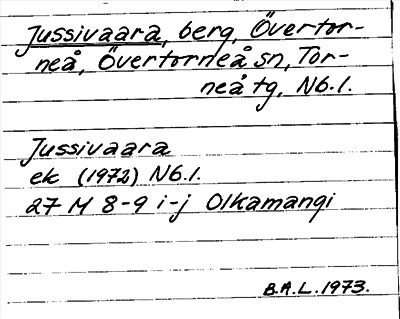 Jussivaara, berg, Övertor-
neå, Övertorneå sn, Tor-
neå tg, Nb.l.
Jussivaara
ek (1972) Nb.l.
27 M 8-9 i-j Olkamangi
B.A.L. 1973.